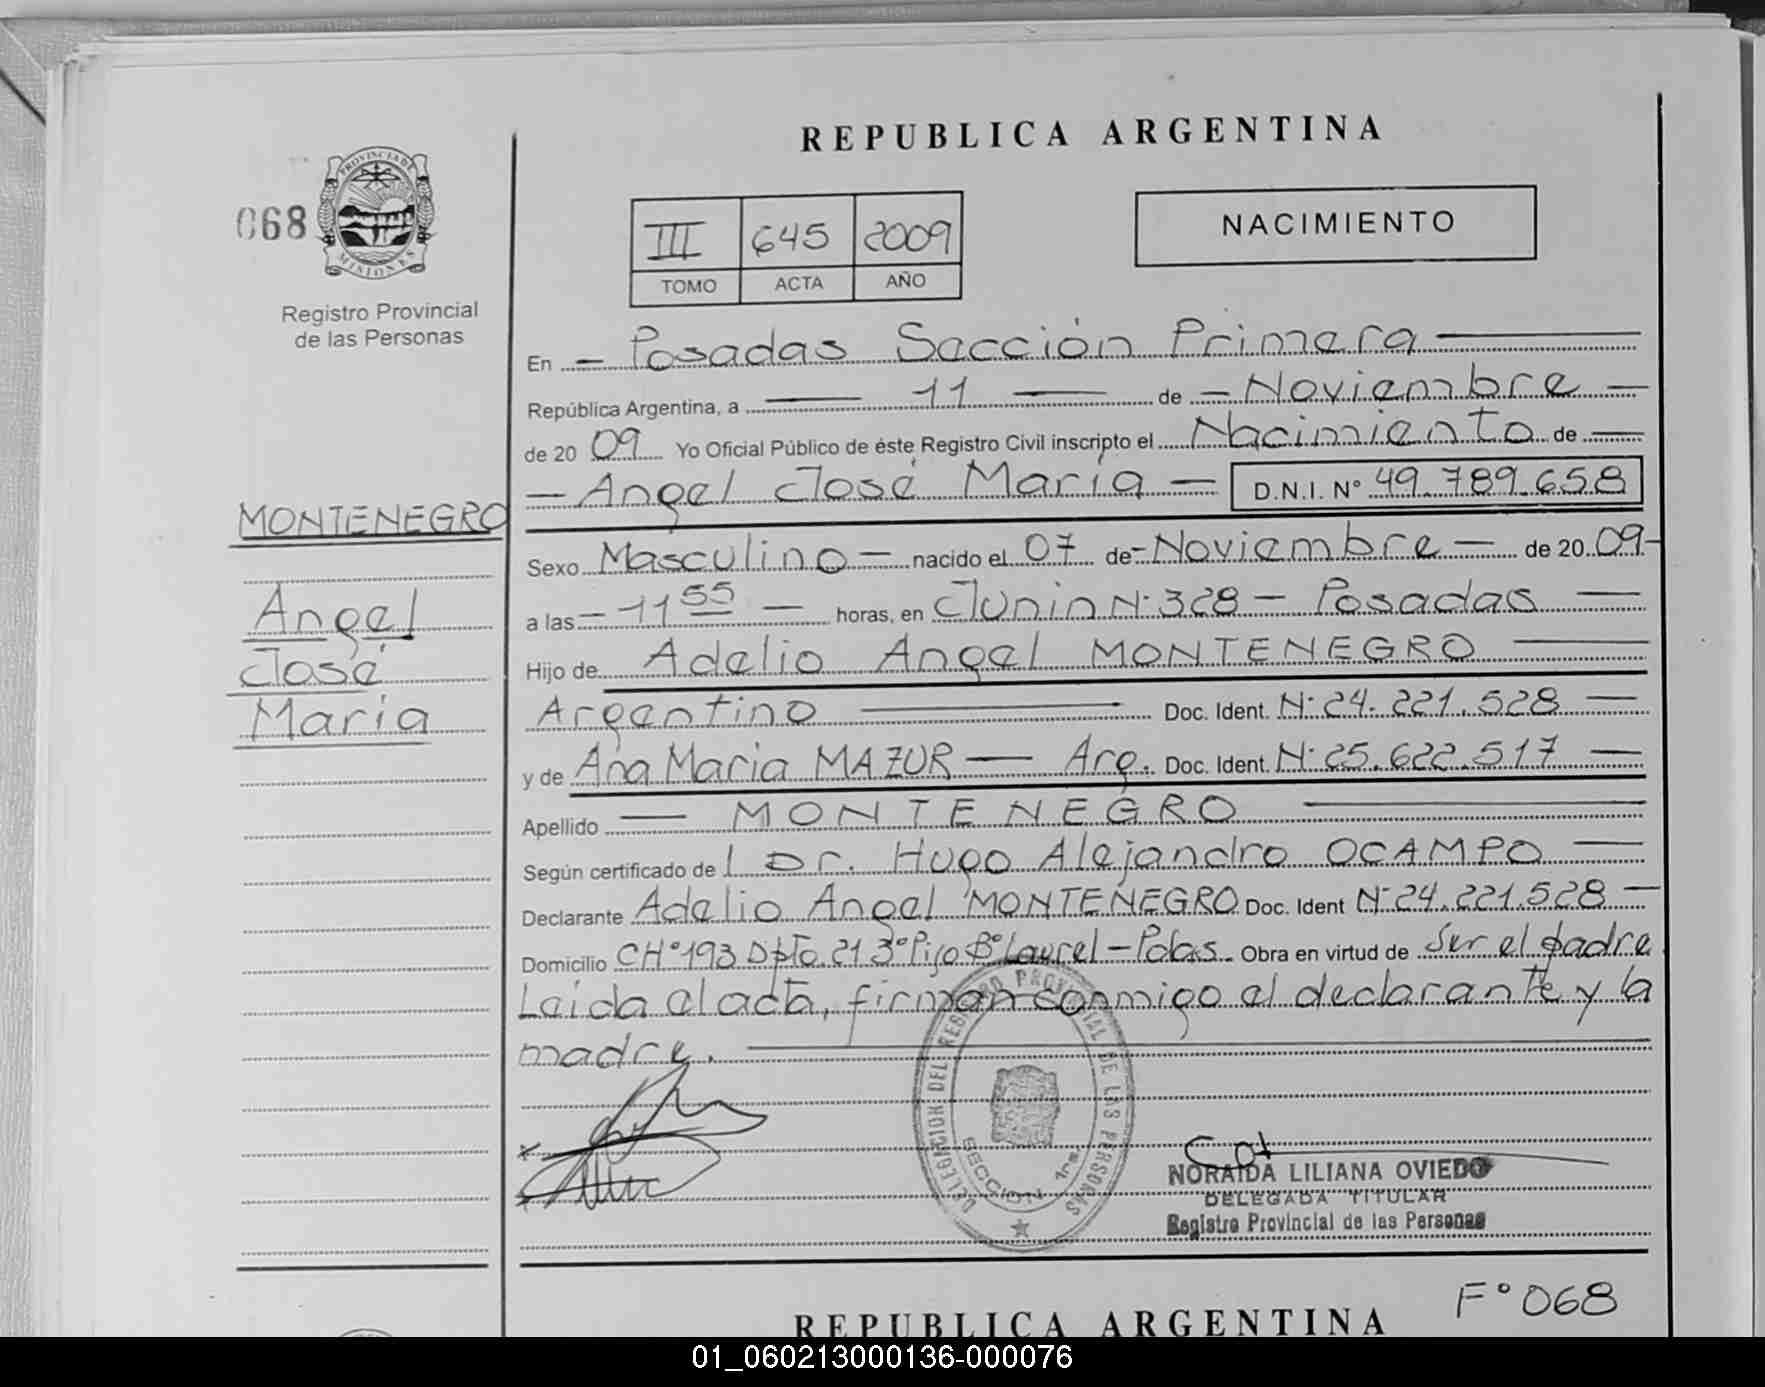 REPUBLICA ARGENTINA
068
PROVINCIA DE
MISIONES
Registro Provincial
de las Personas
III 645 2009
TOMO ACTA AÑO
NACIMIENTO
En - Posadas Sección Primera
República Argentina, a 11 de - Noviembre -
de 20 09 Yo Oficial Público de éste Registro Civil inscripto el Nacimiento de
- Angel José María - D.N.I. Nº 49.789.658
MONTENEGRO
Angel
José
María
Sexo Masculino - nacido el 07 de - Noviembre - de 20 09-
a las - 11 55 - horas, en Junin Nº 328 - Posadas -
Hijo de Adelio Angel MONTENEGRO
Argentino Doc. Ident. Nº 24.221.528 -
y de Ana Maria MAZUR - Arg. Doc. Ident. Nº 25.622.517 -
Apellido - MONTENEGRO
Según certificado de l Dr. Hugo Alejandro OCAMPO -
Declarante Adelio Angel MONTENEGRO Doc. Ident Nº 24.221.528 -
Domicilio CHº193 Dpto. 21 3º Piso Bº Laurel - Pdas. Obra en virtud de Ser el padre
Leida el acta, firman conmigo el declarante y la
madre.
DELEGACION DEL REGISTRO PROVINCIAL DE LAS PERSONAS
SECCION 1ra.
NORAIDA LILIANA OVIEDO
DELEGADA TITULAR
Registro Provincial de las Personas
Fº 068
REPUBLICA ARGENTINA
01_060213000136-000076